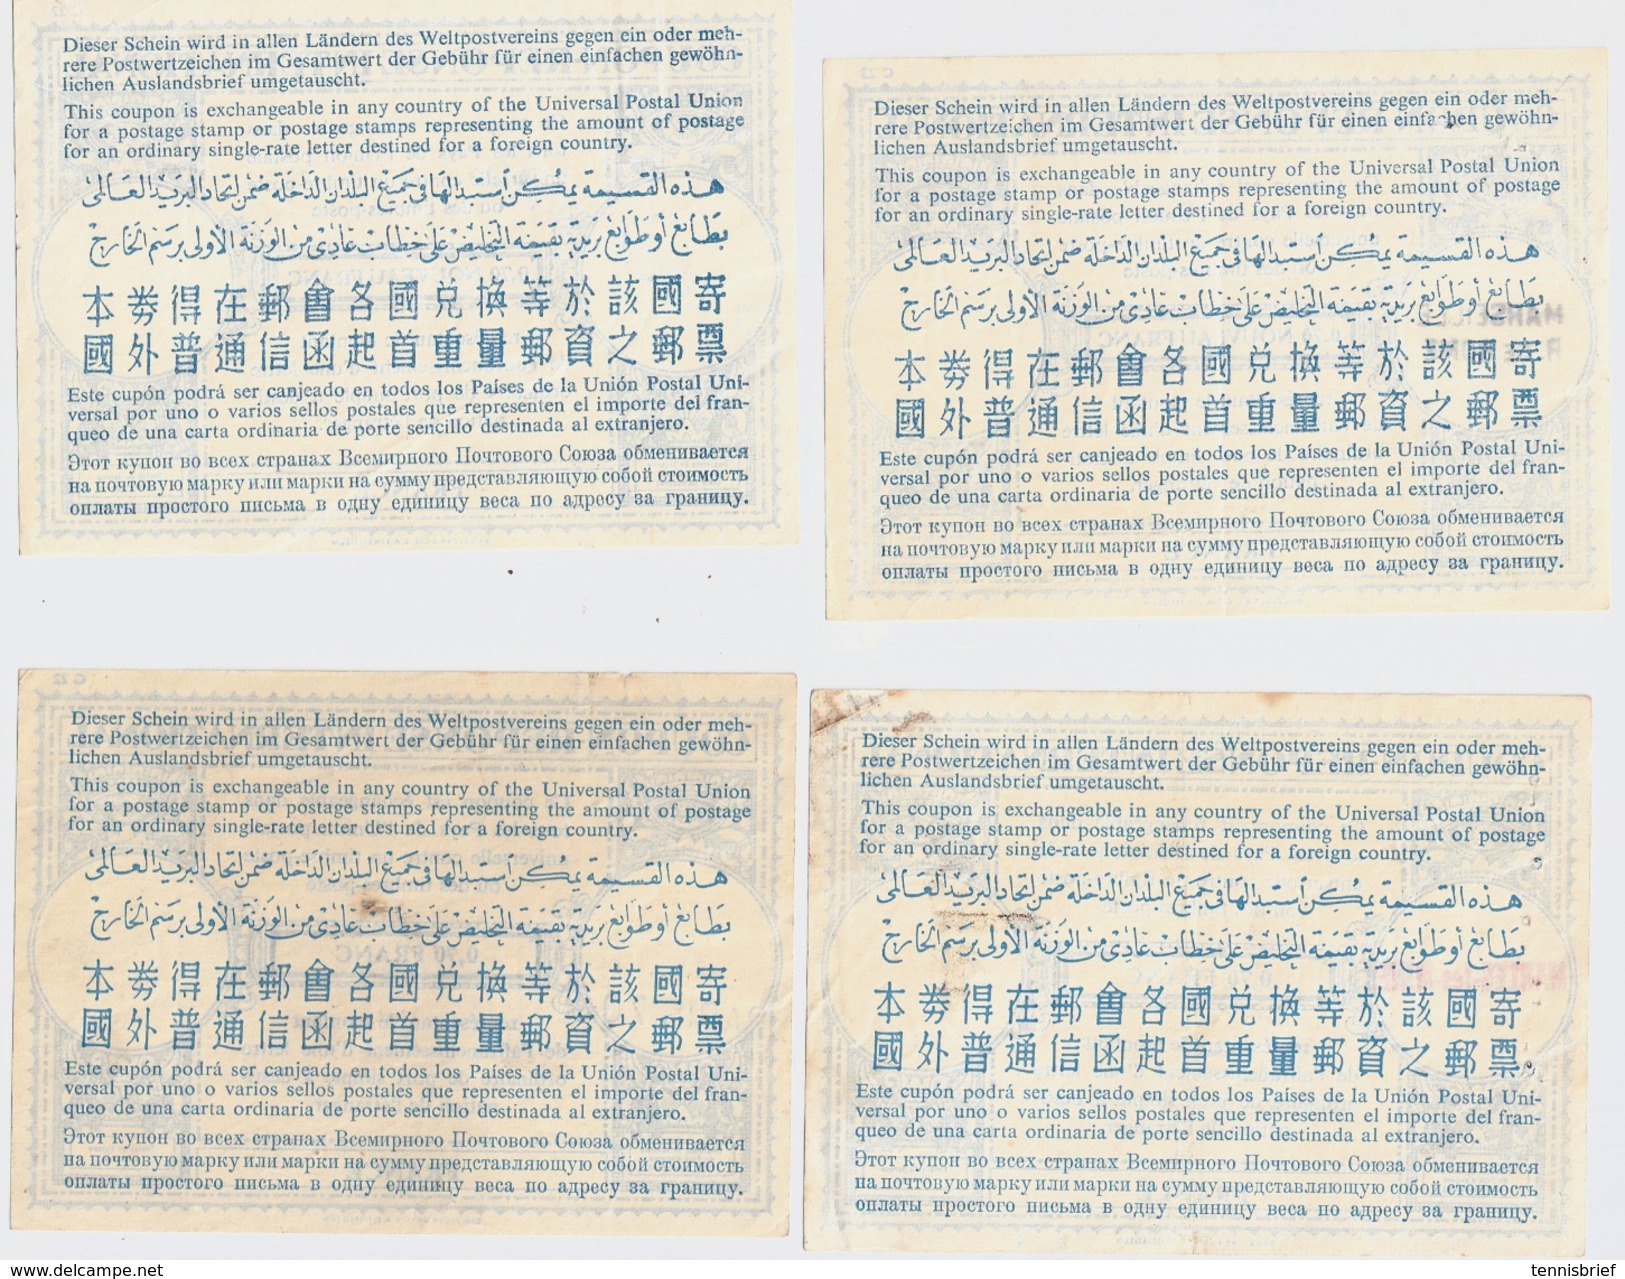 Dieser Schein wird in allen Ländern des Weltpostvereins gegen ein oder meh-
rere Postwertzeichen im Gesamtwert der Gebühr für einen einfachen gewöhn-
lichen Auslandsbrief umgetauscht.
This coupon is exchangeable in any country of the Universal Postal Union
for a postage stamp or postage stamps representing the amount of postage
for an ordinary single-rate letter destined for a foreign country.
هذه القسيمة يمكن استبدالها في جميع البلدان الداخلة ضمن اتحاد البريد العالمى
بطابع أو طوابع بريدية بقيمة التخليص على خطاب عادى من الوزنة الأولى برسم الخارج
本劵得在郵會各國兑換等於該國寄
國外普通信函起首重量郵資之郵票
Este cupón podrá ser canjeado en todos los Países de la Unión Postal Uni-
versal por uno o varios sellos postales que representen el importe del fran-
queo de una carta ordinaria de porte sencillo destinada al extranjero.
Этот купон во всех странах Всемирного Почтового Союза обменивается
на почтовую марку или марки на сумму представляющую собой стоимость
оплаты простого письма в одну единицу веса по адресу за границу.
Dieser Schein wird in allen Ländern des Weltpostvereins gegen ein oder meh-
rere Postwertzeichen im Gesamtwert der Gebühr für einen einfachen gewöhn-
lichen Auslandsbrief umgetauscht.
This coupon is exchangeable in any country of the Universal Postal Union
for a postage stamp or postage stamps representing the amount of postage
for an ordinary single-rate letter destined for a foreign country.
هذه القسيمة يمكن استبدالها في جميع البلدان الداخلة ضمن اتحاد البريد العالمى
بطابع أو طوابع بريدية بقيمة التخليص على خطاب عادى من الوزنة الأولى برسم الخارج
本劵得在郵會各國兑換等於該國寄
國外普通信函起首重量郵資之郵票
Este cupón podrá ser canjeado en todos los Países de la Unión Postal Uni-
versal por uno o varios sellos postales que representen el importe del fran-
queo de una carta ordinaria de porte sencillo destinada al extranjero.
Этот купон во всех странах Всемирного Почтового Союза обменивается
на почтовую марку или марки на сумму представляющую собой стоимость
оплаты простого письма в одну единицу веса по адресу за границу.
C 22
Dieser Schein wird in allen Ländern des Weltpostvereins gegen ein oder meh-
rere Postwertzeichen im Gesamtwert der Gebühr für einen einfachen gewöhn-
lichen Auslandsbrief umgetauscht.
This coupon is exchangeable in any country of the Universal Postal Union
for a postage stamp or postage stamps representing the amount of postage
for an ordinary single-rate letter destined for a foreign country.
هذه القسيمة يمكن استبدالها في جميع البلدان الداخلة ضمن اتحاد البريد العالمى
بطابع أو طوابع بريدية بقيمة التخليص على خطاب عادى من الوزنة الأولى برسم الخارج
本劵得在郵會各國兑換等於該國寄
國外普通信函起首重量郵資之郵票
Este cupón podrá ser canjeado en todos los Países de la Unión Postal Uni-
versal por uno o varios sellos postales que representen el importe del fran-
queo de una carta ordinaria de porte sencillo destinada al extranjero.
Этот купон во всех странах Всемирного Почтового Союза обменивается
на почтовую марку или марки на сумму представляющую собой стоимость
оплаты простого письма в одну единицу веса по адресу за границу.
Dieser Schein wird in allen Ländern des Weltpostvereins gegen ein oder meh-
rere Postwertzeichen im Gesamtwert der Gebühr für einen einfachen gewöhn-
lichen Auslandsbrief umgetauscht.
This coupon is exchangeable in any country of the Universal Postal Union
for a postage stamp or postage stamps representing the amount of postage
for an ordinary single-rate letter destined for a foreign country.
هذه القسيمة يمكن استبدالها في جميع البلدان الداخلة ضمن اتحاد البريد العالمى
بطابع أو طوابع بريدية بقيمة التخليص على خطاب عادى من الوزنة الأولى برسم الخارج
本劵得在郵會各國兑換等於該國寄
國外普通信函起首重量郵資之郵票
Este cupón podrá ser canjeado en todos los Países de la Unión Postal Uni-
versal por uno o varios sellos postales que representen el importe del fran-
queo de una carta ordinaria de porte sencillo destinada al extranjero.
Этот купон во всех странах Всемирного Почтового Союза обменивается
на почтовую марку или марки на сумму представляющую собой стоимость
оплаты простого письма в одну единицу веса по адресу за границу.
www.delcampe.net
tennisbrief